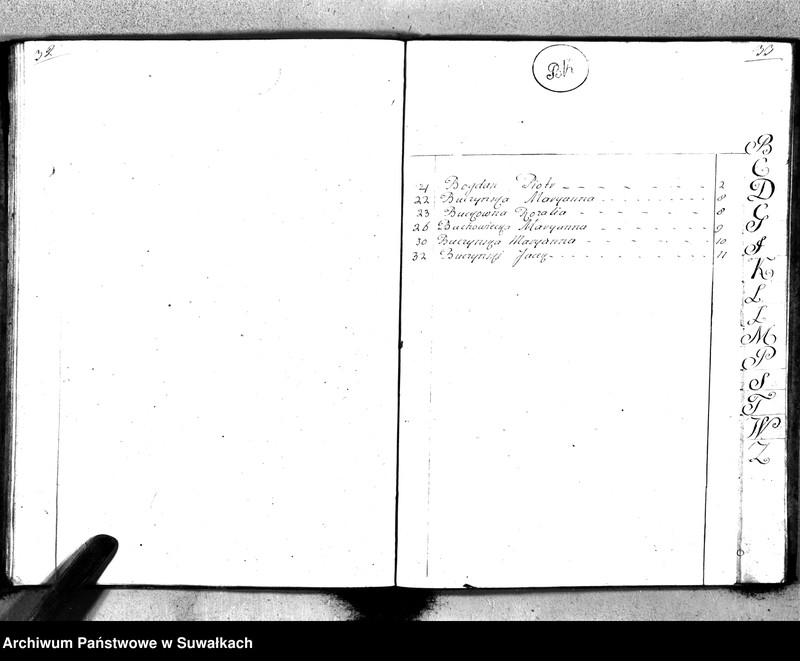 32
33
21 Bogdan Piotr 2
22 Buczyńska Maryanna 8
23 Rozalia 8
26 Buchowiecka Maryanna 9
30 Buczyńska Maryanna 10
32 Buczyński Jacek 11
B
C
D
G
J
K
L
Ł
M
P
S
T
W
Z
Archiwum Państwowe w Suwałkach